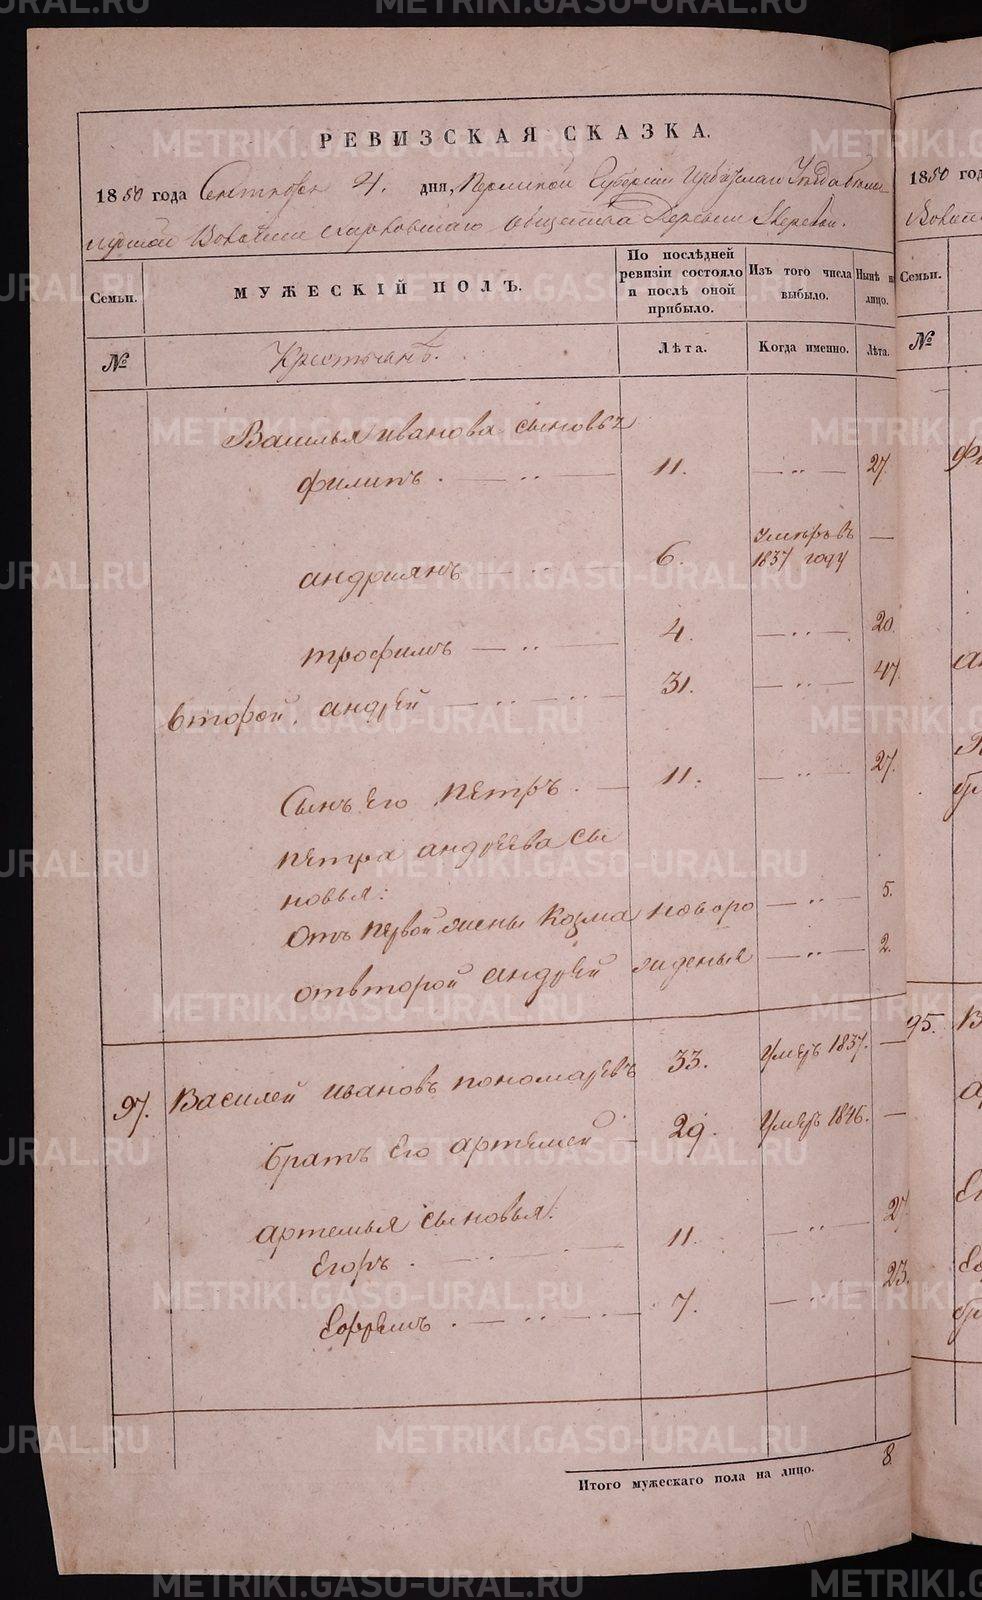 РЕВИЗСКАЯ СКАЗКА.
1850 года Сентября 4. дня, Пермской Губернии Ирбитскаго Уезда
Волости общества Деревни
Семьи.
МУЖЕСКІЙ ПОЛЪ.
По послѣдней ревизіи состояло и послѣ оной прибыло.
Изъ того числа выбыло.
Нынѣ на лицо.
№
Крестьянъ.
Лѣта.
Когда именно.
Лѣта.
Василья иванова сыновья
филипъ . — .. — 11. — .. — 27.
андриянъ — .. — 6. умеръ въ 1837 году —
трофимъ — .. — 4. — .. — 20.
второй. андрей — .. — 31. — .. — 47.
Сынъ его петръ . — 11. — .. — 27.
петра андреева сы
новья:
отъ первой жены Козма новоро — .. — 5.
отвторой андрей жденыя — .. — 2.
97. Василей ивановъ пономаревъ 33. Умеръ 1837. —
братъ его артемей — 29. Умеръ 1846. —
артемья сыновья:
Егоръ . — .. — 11. — .. — 27.
Ефремъ . — .. — 7. — .. — 23.
Итого мужескаго пола на лицо. 8.
1850 год
Семьи.
№
95.
METRIKI.GASO-URAL.RU